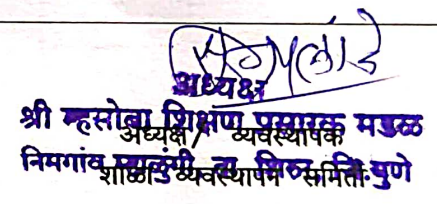 अध्यक्ष
श्री म्हसोबा शिक्षण प्रसारक मंडळ
अध्यक्ष / व्यवस्थापक
निमगांव म्हाळुंगी, ता. शिरूर, जि. पुणे
शाळा व्यवस्थापन समिती